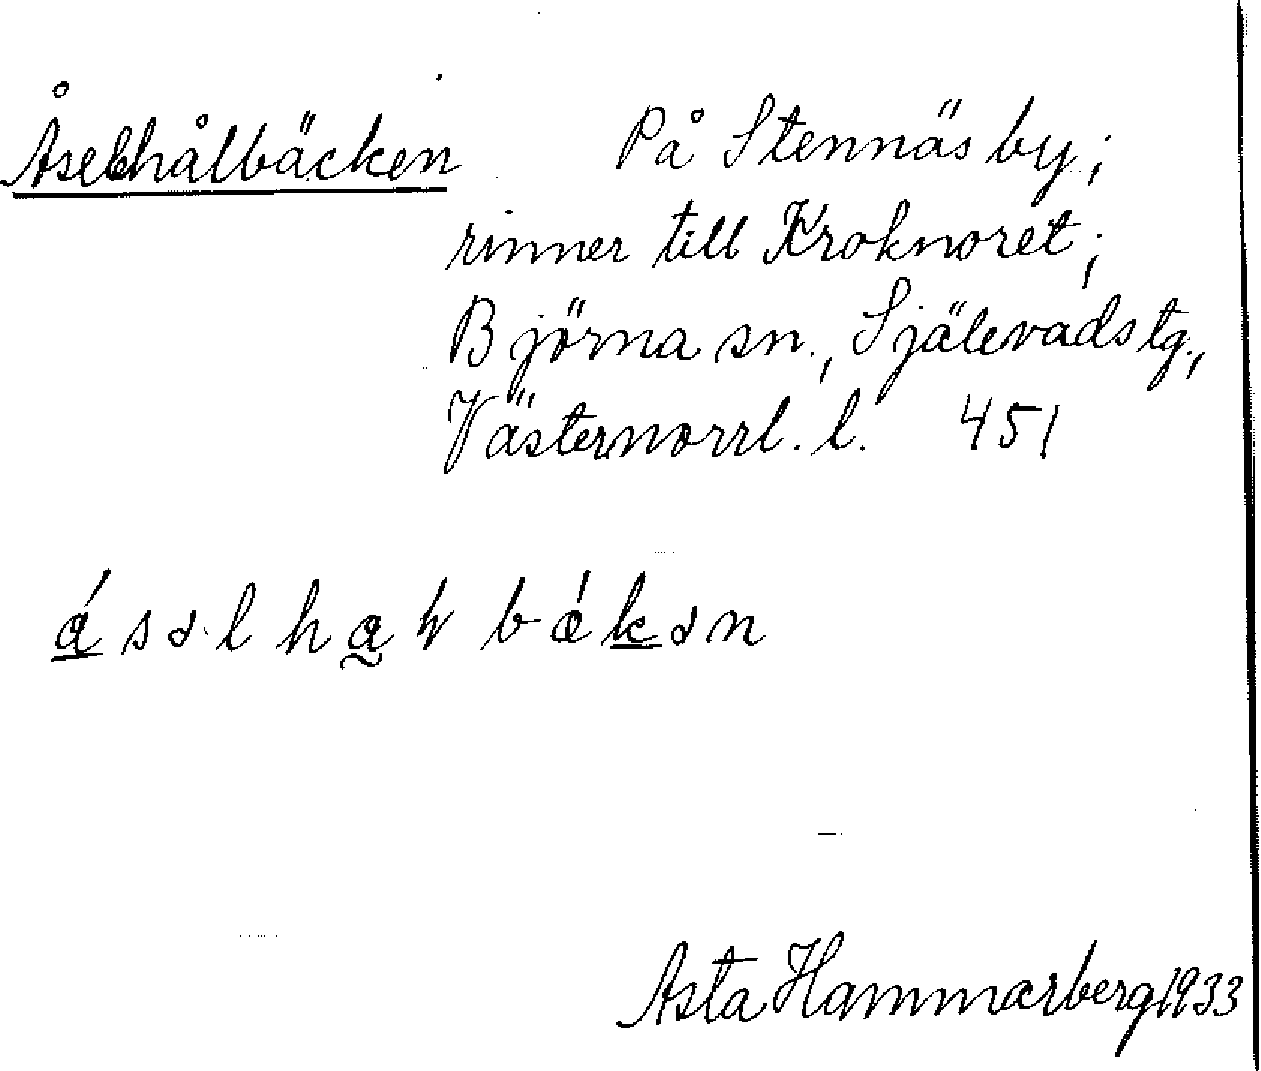 Åselhålbäcken På Stennäs by;
rinner till Kroknoret;
Björna sn., Själevads tg.,
Västernorrl. l. 451
á s ə l h a ɫ b ǽ k ə n
Asta Hammarberg 1933